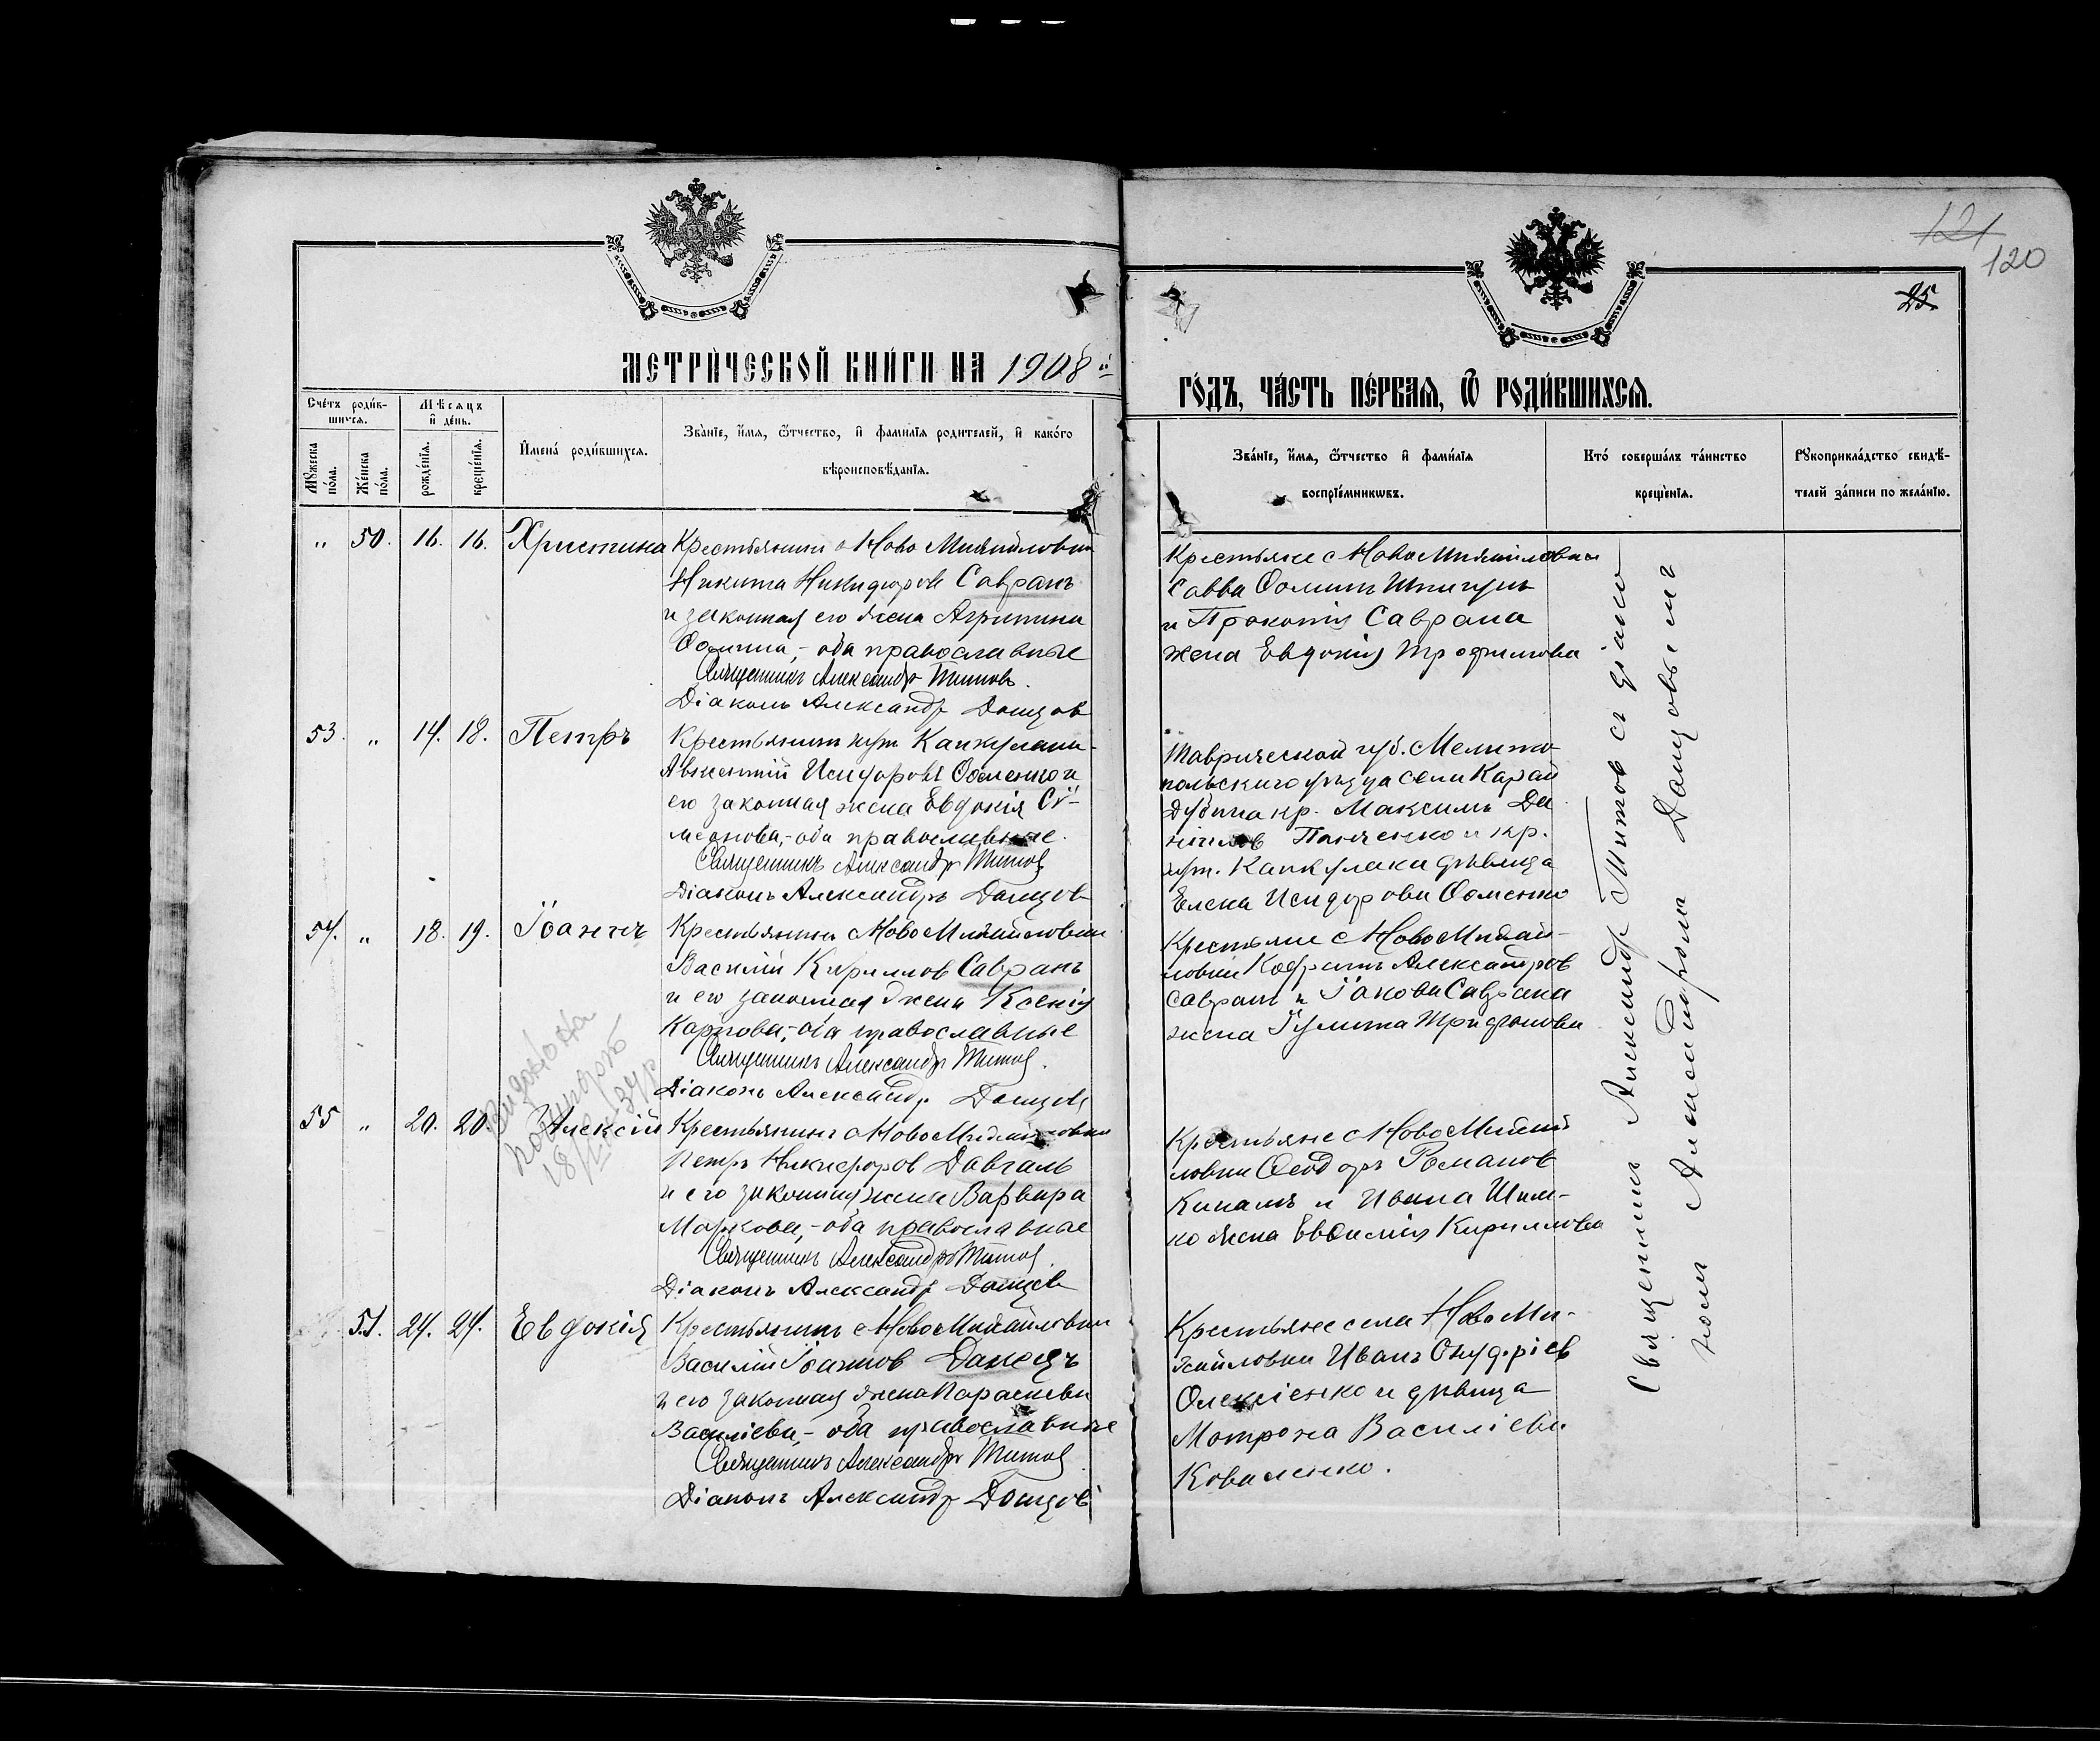 121
120
25
МЕТРИЧЕСКОЙ КНИГИ НА 1908й
ГОДЪ, ЧАСТЬ ПЕРВАЯ, Ѿ РОДИВШИХСЯ.
Счетъ родившихся.
Мужеска пола.
Женска пола.
Мѣсяцъ и день.
рожденія.
крещенія.
Имена родившихся.
Званіе, имя, ѿтчество, и фамилія родителей, и какого
вѣроисповѣданія.
Званіе, имя, ѿтчество и фамилія
воспріемниковъ.
Кто совершалъ таинство
крещенія.
Рукоприкладство свидѣ-
телей записи по желанію.
„ 50. 16. 16. Христина
Крестьянинъ с Ново Михайловки
Никита Никифоров Савранъ
и законная его жена Агрипина
Ѳомина,- оба православные
Священникъ Александръ Титовъ.
Діаконъ Александр Донцов
Крестьяне с НовоМихайловки
Савва Ѳоминъ Шпигунъ
и Прокопія Саврана
жена Евдокія Трофимова
53. „ 14. 18. Петръ
Крестьянинъ хут. Капкулаки-
Авксентій Исидоровъ Ѳоменко и
его законная жена Евдокія Сѵ-
меонова,- оба православные.
Священникъ Александръ Титов
Діаконъ Александръ Донцов
Таврической губ. Мелито-
польскаго уѣзда села Карай
Дубина кр. Максимъ Да-
ніилов Панченко и кр.
хут. Капкулаки дѣвица
Елена Исидорова Ѳоменко
54. „ 18. 19. Іоаннъ
Крестьянинъ с НовоМихайловки
Василій Кириллов Савранъ
и его законная жена Ксенія
Карпова,- оба православные
Священникъ Александръ Титов.
Діаконъ Александр Донцов
Крестьяне с НовоМихай-
ловки Кодратъ Александров
Савранъ и Іакова Саврана
жена Іулита Трифонова
55 „ 20. 20. Алексій
18/
Крестьянинъ с НовоМихайловки
Петръ Никифоров Довгаль
и его законная жена Варвара
Маркова,- оба православные
Священникъ Александръ Титов.
Діаконъ Александр Донцов
Крестьяне с НовоМихай
ловки Ѳеодоръ Романов
и Ивана Шим-
ко жена Евѳимія Кириллова
51. 24. 24. Евдокія
Крестьянинъ с НовоМихайловки
Василій Іоаннов Донецъ
и его законная жена Параскева
Василіева,- оба православные
Священникъ Александръ Титов
Діаконъ Александр Донцов
Крестьяне села НовоМи-
хайловки Иванъ Онуфріев
Олексіенко и дѣвица
Мотрона Василіева
Коваленко.
Священникъ Александр Титов съ діако
номъ Александромъ Донцовымъ